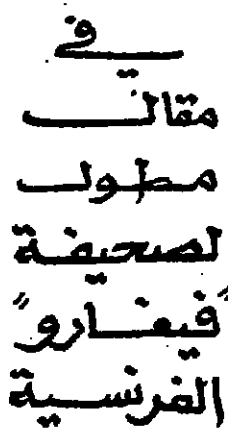 في
مقال
مطول
لصحيفة
"فيغارو"
الفرنسية